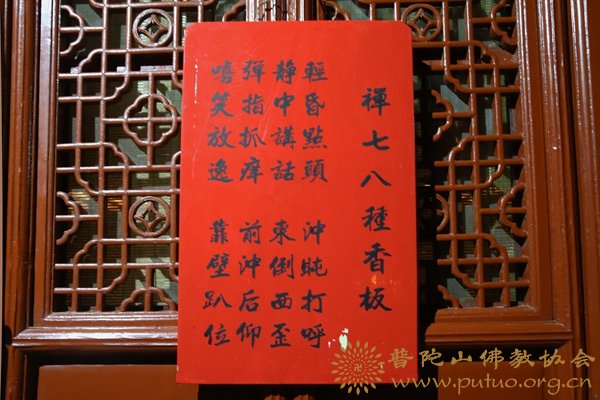 禪七八種香板
輕昏點頭 沖盹打呼
静中講話 東倒西歪
彈指抓痒 前沖后仰
嘻笑放逸 靠壁趴位
普陀山佛教协会
www.putuo.org.cn